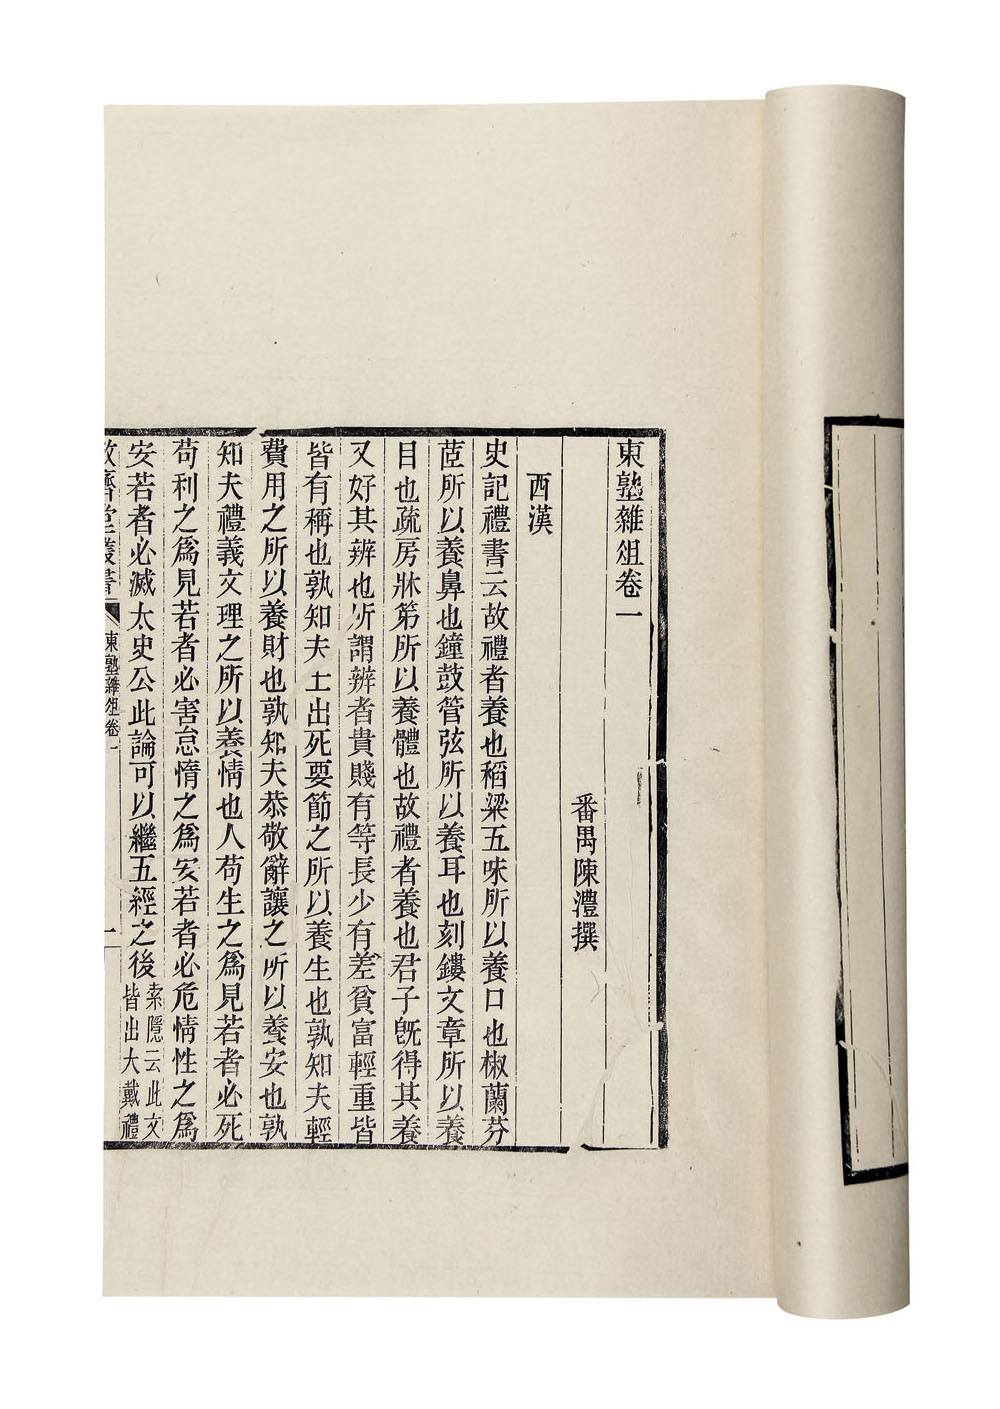 東塾雜俎卷一
番禺陳澧撰
西漢
史記禮書云故禮者養也稻粱五味所以養口也椒蘭芬
茝所以養鼻也鐘鼓管弦所以養耳也刻鏤文章所以養
目也疏房牀笫所以養體也故禮者養也君子旣得其養
又好其辨也所謂辨者貴賤有等長少有差貧富輕重皆
皆有稱也孰知夫士出死要節之所以養生也孰知夫輕
費用之所以養財也孰知夫恭敬辭讓之所以養安也孰
知夫禮義文理之所以養情也人苟生之爲見若者必死
苟利之爲見若者必害怠惰之爲安若者必危情性之爲
安若者必滅太史公此論可以繼五經之後索隱云此文
皆出大戴禮
敬躋堂叢書 東塾雜俎卷一 一